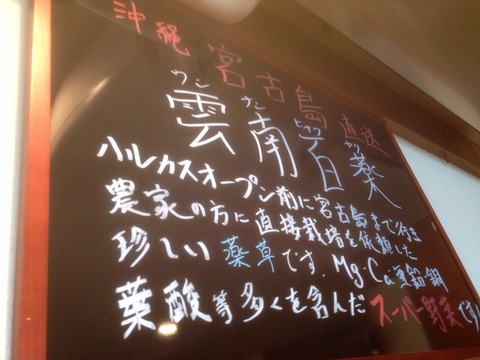 沖縄 宮古島 直送
ウン ナン ヒャク ヤク
雲南百薬
ハルカスオープン前に宮古島まで行き
農家の方に直接栽培を依頼した
珍しい薬草です。Mg.Ca亜鉛・銅
葉酸等多くを含んだスーパー野菜です!